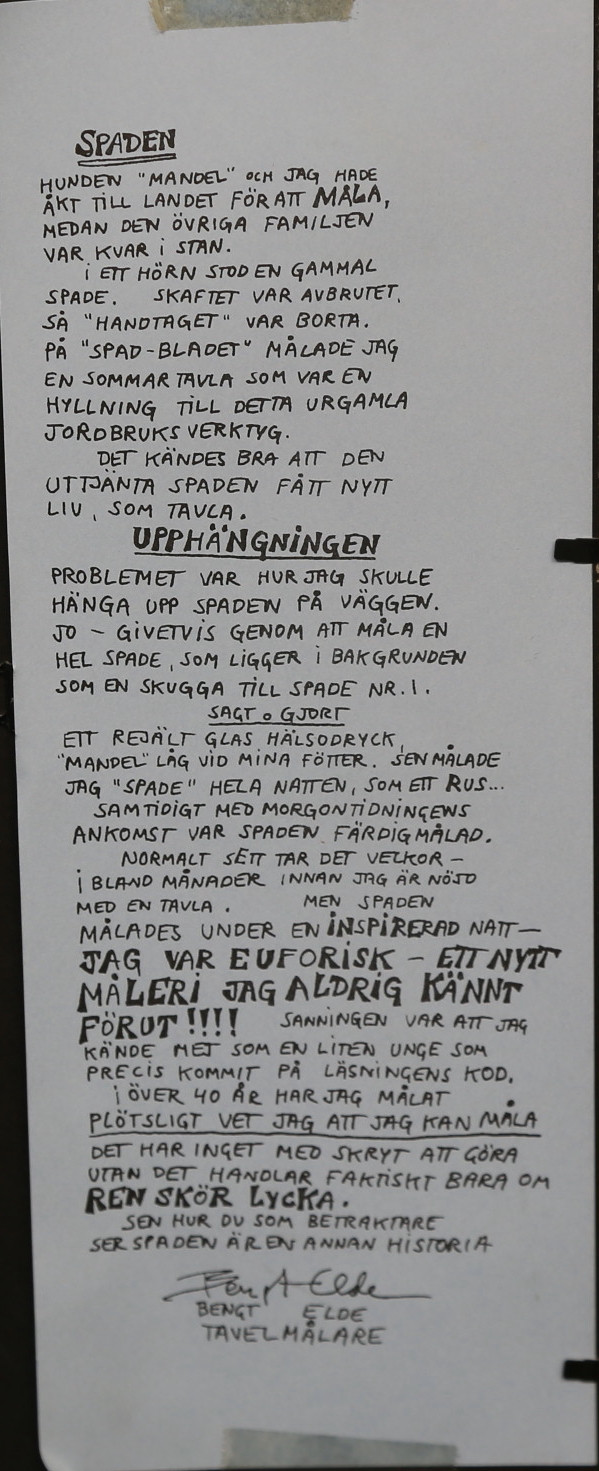 SPADEN
HUNDEN "MANDEL" OCH JAG HADE
ÅKT TILL LANDET FÖR ATT MÅLA,
MEDAN DEN ÖVRIGA FAMILJEN
VAR KVAR i STAN.
i ETT HÖRN STOD EN GAMMAL
SPADE. SKAFTET VAR AVBRUTET,
SÅ "HANDTAGET" VAR BORTA.
PÅ "SPAD-BLADET" MÅLADE JAG
EN SOMMARTAVLA SOM VAR EN
HYLLNING TILL DETTA URGAMLA
JORDBRUKSVERKTYG.
DET KÄNDES BRA ATT DEN
UTTJÄNTA SPADEN FÅTT NYTT
LIV, SOM TAVLA.
UPPHÄNGNINGEN
PROBLEMET VAR HUR JAG SKULLE
HÄNGA UPP SPADEN PÅ VÄGGEN.
JO - GIVETVIS GENOM ATT MÅLA EN
HEL SPADE, SOM LIGGER i BAKGRUNDEN
SOM EN SKUGGA TILL SPADE NR.1.
SAGT o GJORT
ETT REJÄLT GLAS HÄLSODRYCK,
"MANDEL" LÅG VID MINA FÖTTER. SEN MÅLADE
JAG "SPADE" HELA NATTEN, SOM ETT RUS...
SAMTIDIGT MED MORGONTIDNINGENS
ANKOMST VAR SPADEN FÄRDIGMÅLAD.
NORMALT SETT TAR DET VECKOR -
i BLAND MÅNADER INNAN JAG ÄR NÖJD
MED EN TAVLA. MEN SPADEN
MÅLADES UNDER EN INSPIRERAD NATT -
JAG VAR EUFORISK - ETT NYTT
MÅLERI JAG ALDRIG KÄNNT
FÖRUT!!!! SANNINGEN VAR ATT JAG
KÄNDE MET SOM EN LITEN UNGE SOM
PRECIS KOMMIT PÅ LÄSNINGENS KOD.
i ÖVER 40 ÅR HAR JAG MÅLAT
PLÖTSLIGT VET JAG ATT JAG KAN MÅLA
DET HAR INGET MED SKRYT ATT GÖRA
UTAN DET HANDLAR FAKTISKT BARA OM
REN SKÖR LYCKA.
SEN HUR DU SOM BETRAKTARE
SER SPADEN ÄR EN ANNAN HISTORIA
Bengt Elde
BENGT ELDE
TAVELMÅLARE